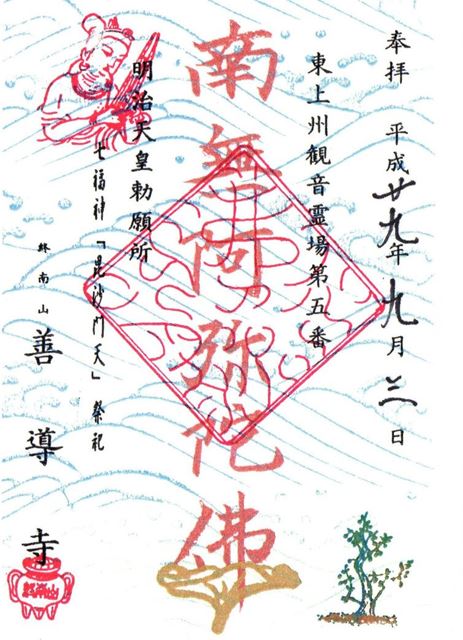 奉拝 平成廿九年九月三日
東上州観音霊場第五番
南無阿弥陀佛
明治天皇勅願所
七福神「毘沙門天」祭祀
終南山 善導寺